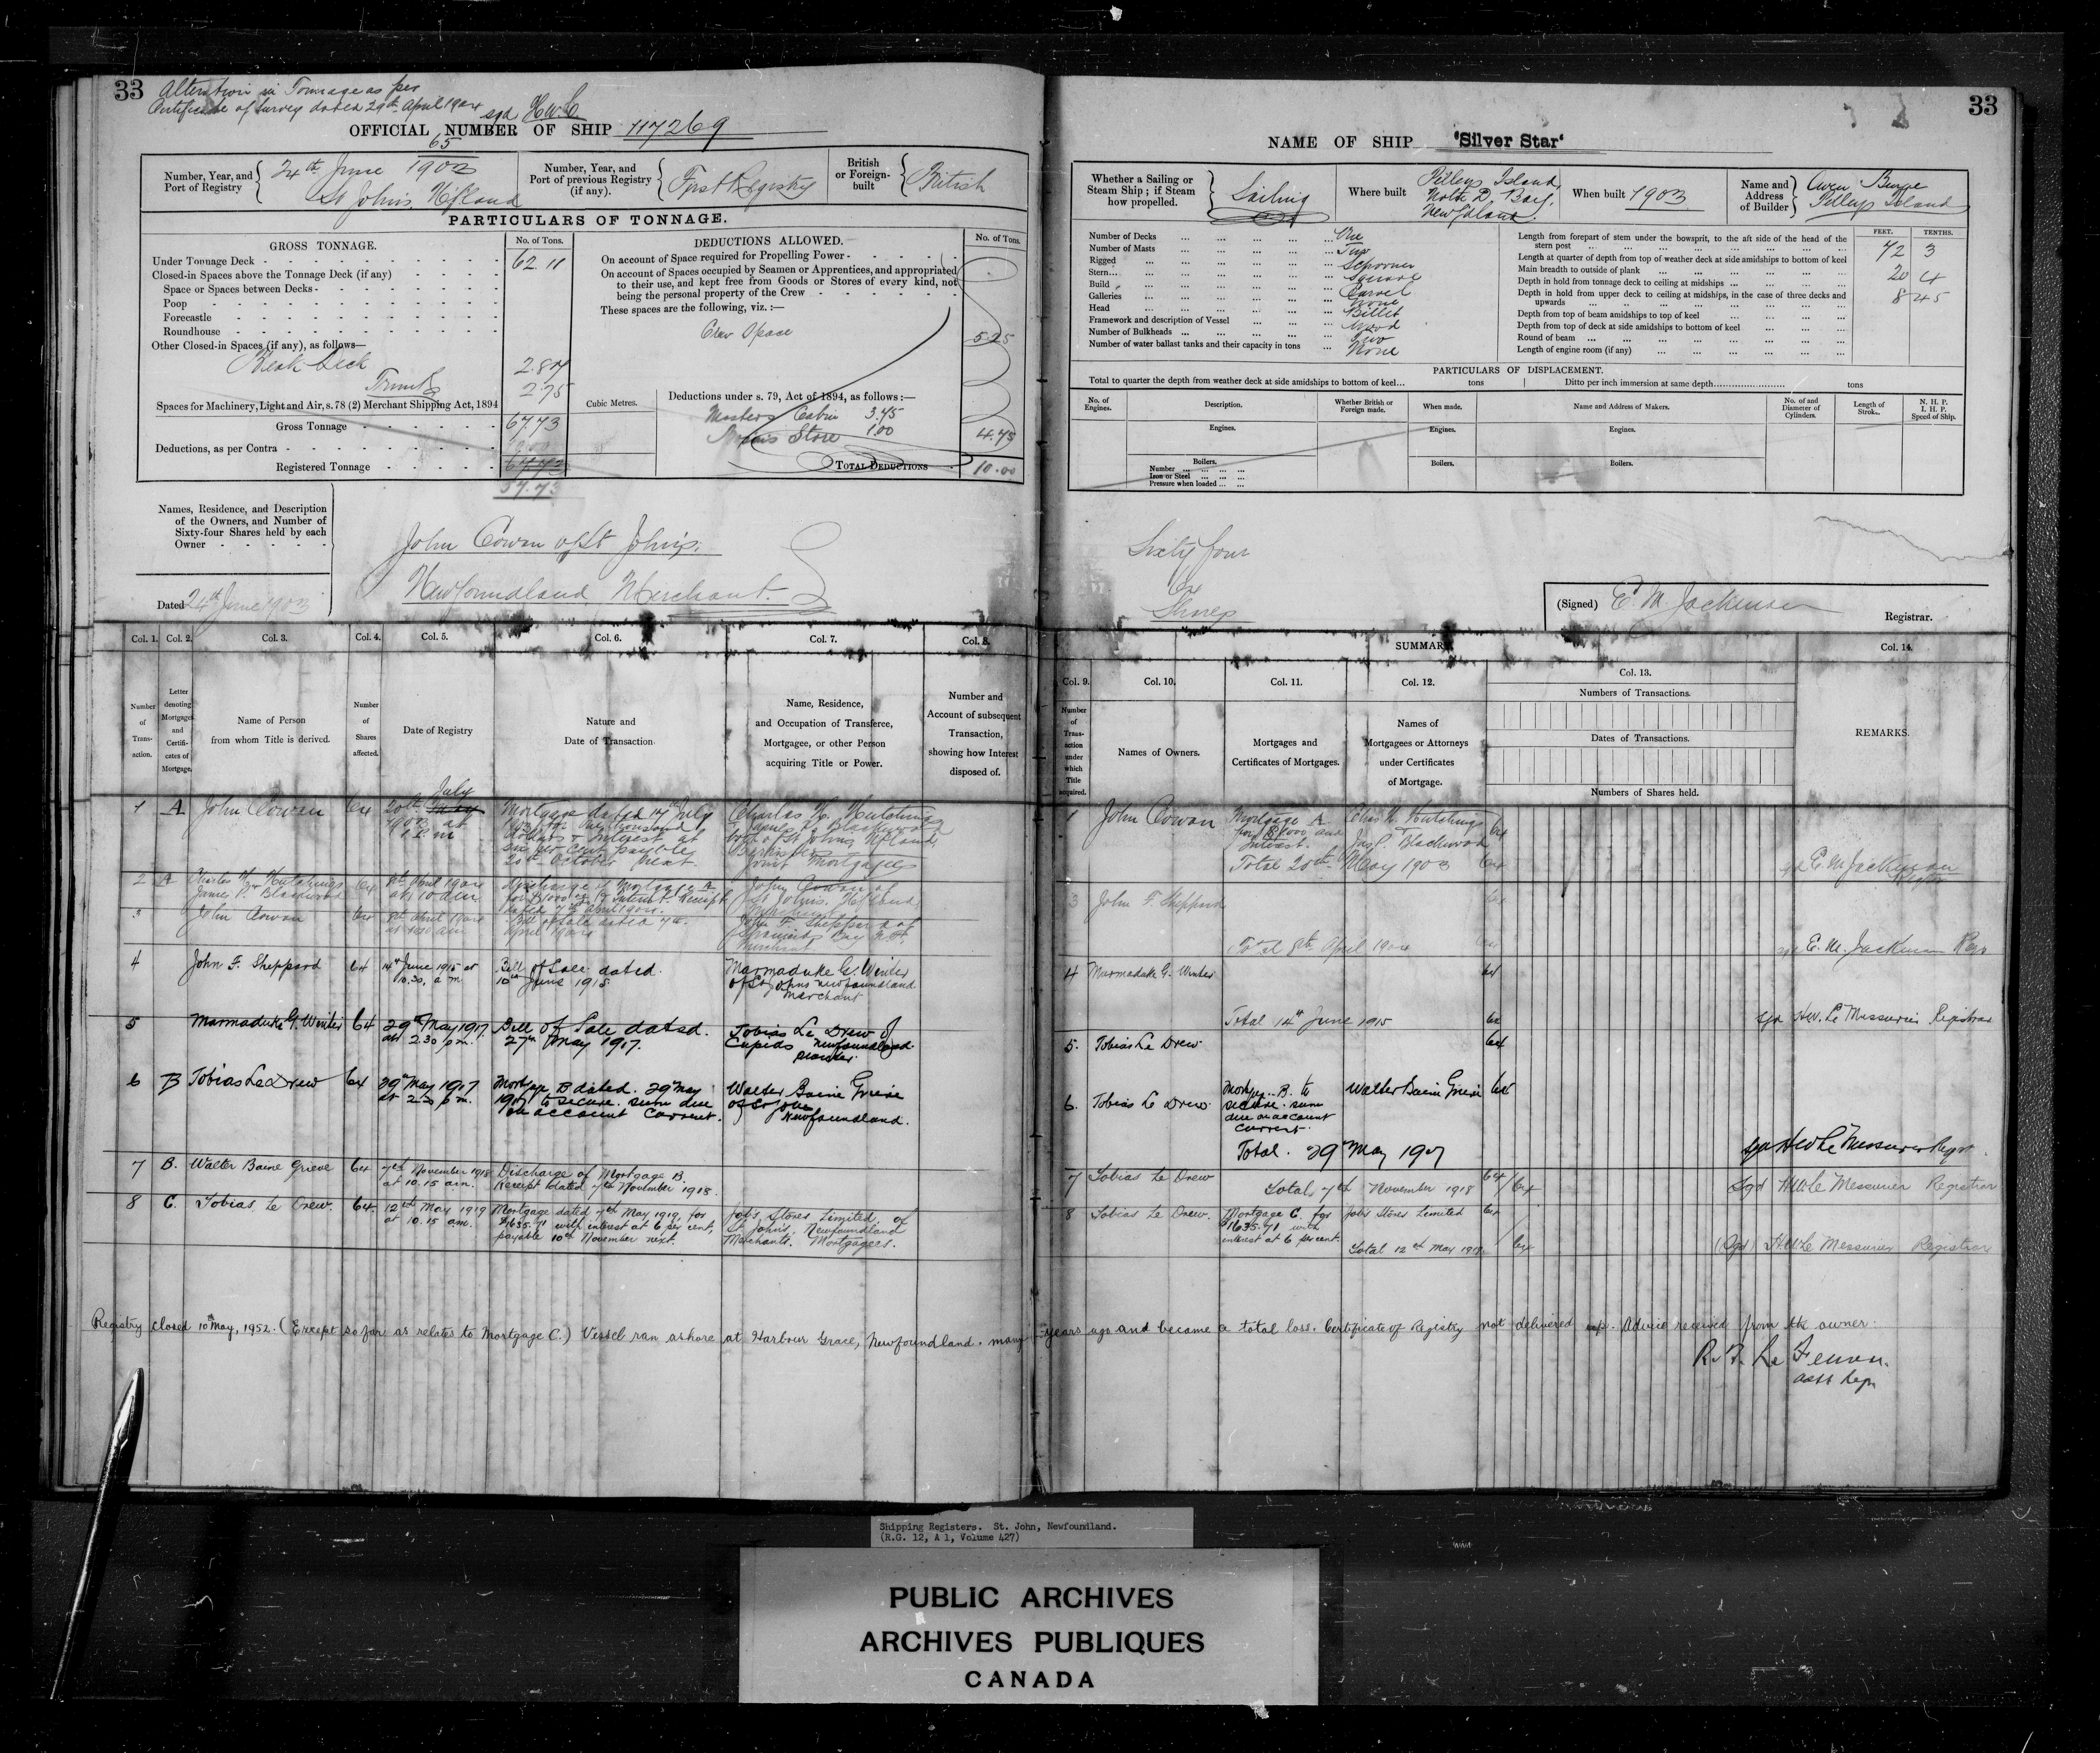 33
Alteration in Tonnage as per
Certificate of Survey dated 29th April 1904 sgd H.W.L
OFFICIAL NUMBER OF SHIP 117269
Number, Year, and Port of Registry
65
24th June 1903
St Johns. Nfland
Number, Year, and Port of previous Registry (if any).
First Registry
British or Foreign-built
British
PARTICULARS OF TONNAGE.
GROSS TONNAGE.
No. of Tons.
Under Tonnage Deck 62.11
Closed-in Spaces above the Tonnage Deck (if any)
Space or Spaces between Decks
Poop
Forecastle
Roundhouse
Other Closed-in Spaces (if any), as follows—
Break Deck 2.87
Trunk 2.75
Spaces for Machinery, Light and Air, s. 78 (2) Merchant Shipping Act, 1894
Gross Tonnage 67.73
Deductions, as per Contra 10.00
Registered Tonnage
57.73
Cubic Metres.
DEDUCTIONS ALLOWED.
No. of Tons.
On account of Space required for Propelling Power
On account of Spaces occupied by Seamen or Apprentices, and appropriated
to their use, and kept free from Goods or Stores of every kind, not
being the personal property of the Crew
These spaces are the following, viz.:—
Crew Space 5.25
Deductions under s. 79, Act of 1894, as follows:—
Masters Cabin 3.75
Store 1.00
4.75
TOTAL DEDUCTIONS 10.00
Names, Residence, and Description
of the Owners, and Number of
Sixty-four Shares held by each
Owner
John Cowan of St John's.
Newfoundland. Merchant.
Dated 24th June 1903
Col. 1. Col. 2. Col. 3. Col. 4. Col. 5. Col. 6. Col. 7. Col. 8.
Number of Transaction.
Letter denoting Mortgages and Certificates of Mortgage.
Name of Person from whom Title is derived.
Number of Shares affected.
Date of Registry
Nature and Date of Transaction
Name, Residence, and Occupation of Transferee, Mortgagee, or other Person acquiring Title or Power.
Number and Account of subsequent Transaction, showing how Interest disposed of.
1 A John Cowan 64 20th July
1903 at
Mortgage dated 17th July
Interest at
six per cent payable
20th October next.
Charles H. Hutchings
James P. Blackwood
both of St Johns Nfland,
Barristers
Joint Mortgagees
2 A Charles H. Hutchings
James P. Blackwood 64 8th April 1904
at 10 a.m.
Discharge of Mortgage A
for $1000 & Interest. Receipt
dated 7th April 1904.
John Cowan of
St Johns. Nfland
3 John Cowan 64 8th April 1904
Bill of Sale dated 7th
April 1904
John F. Sheppard of
Spaniards Bay
Merchant
4 John F. Sheppard 64 14th June 1915 at
10.30, a m
Bill of Sale dated.
10th June 1915
Marmaduke G. Winter
of St Johns Newfoundland
Merchant
5 Marmaduke G. Winter 64 29th May 1917.
at 2.30 p m.
Bill of Sale dated.
27th May 1917.
Tobias Le Drew of
Cupids Newfoundland.
6 B Tobias Le Drew 64 29th May 1917
Mortgage B dated. 29 May
1917 to secure. sum due
on account Current.
Walter Baine Grieve
of St Johns
Newfoundland.
7 B. Walter Baine Grieve 64 7th November 1918
at 10.15 a.m.
Discharge of Mortgage B.
Receipt dated 7th November 1918.
8 C. Tobias Le Drew. 64. 12th May 1919
at 10.15 am.
Mortgage dated 7th May 1919, for
$1635.71 with interest at 6 per cent,
payable 10th November next.
Job's Stores Limited, of
St John's, Newfoundland
Merchants. Mortgagees.
33
NAME OF SHIP 'Silver Star'
Whether a Sailing or Steam Ship; if Steam how propelled.
Sailing
Where built
Pilleys Island,
Notre D. Bay.
Newfdland.
When built 1903
Name and Address of Builder
Owen Burge
Pilleys Island
Number of Decks One
Number of Masts Two
Rigged Schooner
Stern Square
Build Carvel
Galleries None
Head Billet
Framework and description of Vessel Wood
Number of Bulkheads Two
Number of water ballast tanks and their capacity in tons None
FEET. TENTHS.
Length from forepart of stem under the bowsprit, to the aft side of the head of the
stern post 72 3
Length at quarter of depth from top of weather deck at side amidships to bottom of keel
Main breadth to outside of plank 20 4
Depth in hold from tonnage deck to ceiling at midships 8 45
Depth in hold from upper deck to ceiling at midships, in the case of three decks and
upwards
Depth from top of beam amidships to top of keel
Depth from top of deck at side amidships to bottom of keel
Round of beam
Length of engine room (if any)
PARTICULARS OF DISPLACEMENT.
Total to quarter the depth from weather deck at side amidships to bottom of keel... tons
Ditto per inch immersion at same depth... tons
No. of Engines.
Description.
Whether British or Foreign made.
When made.
Name and Address of Makers.
No. of and Diameter of Cylinders.
Length of Stroke.
N. H. P.
I. H. P.
Speed of Ship.
Engines. Engines. Engines.
Boilers. Boilers. Boilers.
Number
Iron or Steel
Pressure when loaded
Sixty four
64
Shares
(Signed) E. M. Jackman Registrar.
SUMMARY
Col. 9. Col. 10. Col. 11. Col. 12. Col. 13. Col. 14.
Number of Transaction under which Title acquired.
Names of Owners.
Mortgages and Certificates of Mortgages.
Names of Mortgagees or Attorneys under Certificates of Mortgage.
Numbers of Transactions.
Dates of Transactions.
Numbers of Shares held.
REMARKS.
1 John Cowan Mortgage A
for $1000 and
Interest.
Chas H. Hutchings
Jas P. Blackwood 64
Total 20th May 1903 64
sgd E. M. Jackman
3 John F. Sheppard 64
Total 8th April 1904 64
sgd E. M. Jackman Regr
4 Marmaduke G. Winter 64
Total 14th June 1915 64
sgd H.W. Le Messurier Registrar
5. Tobias Le Drew 64
6. Tobias Le Drew Mortgage B. to
secure. sum
due on account
current.
Walter Baine Grieve 64
Total. 29 May 1917
sgd H W Le Messurier Regr
7 Tobias Le Drew 64
Total 7th November 1918 64
Sgd H.W. Le Messurier Registrar
8 Tobias Le Drew. Mortgage C. for
$1635.71 with
interest at 6 per cent.
Job's Stores Limited 64
Total 12th May 1919 64
(Sgd) H.W. Le Messurier Registrar
Registry closed 10th May, 1952. (Except so far as relates to Mortgage C.) Vessel ran ashore at Harbour Grace, Newfoundland. many years ago and became a total loss. Certificate of Registry not delivered up. Advice received from the owner.
Asst Regr
Shipping Registers. St. John, Newfoundland.
(R.G. 12, A 1, Volume 427)
PUBLIC ARCHIVES
ARCHIVES PUBLIQUES
CANADA